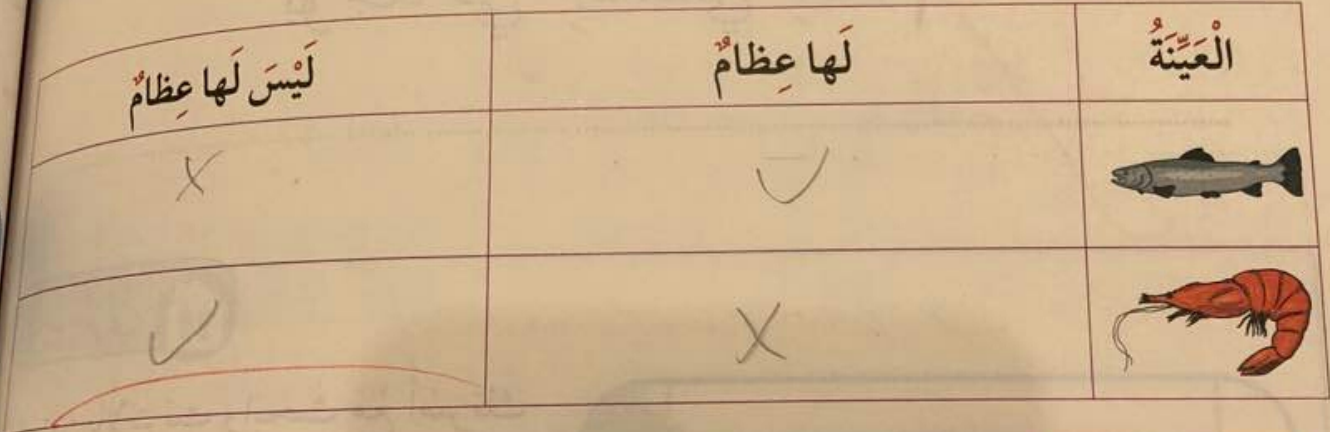 الْعَيِّنَةُ
لَها عِظامٌ
لَيْسَ لَها عِظامٌ
✓ ✗
✗ ✓